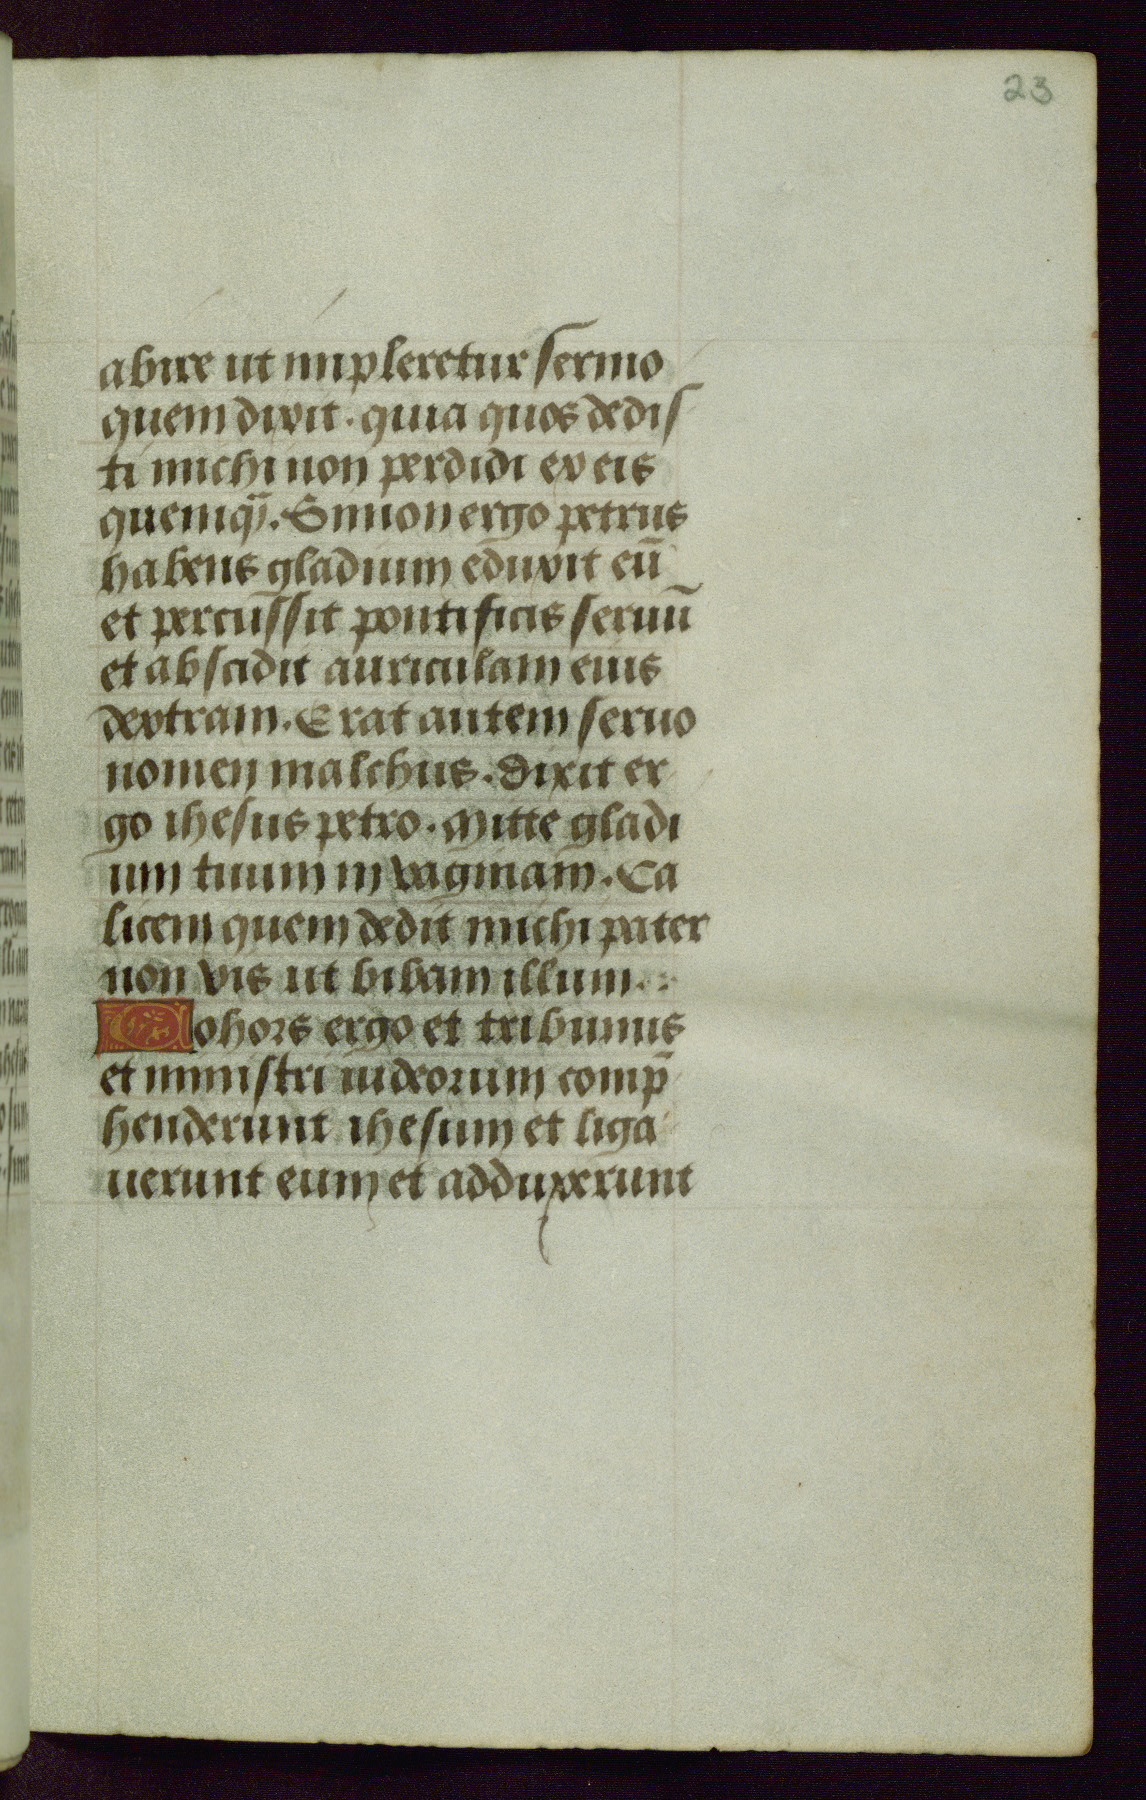 23
abire ut impleretur sermo
quem dixit. quia quos dedis
ti michi non perdidi ex eis
quemq̄. Simon ergo petrus
habens gladium eduxit eū
et percussit pontificis seruū
et abscidit auriculam eius
dextram. Erat autem seruo
nomen malchus. dixit er
go ihesus petro. Mitte gladi
um tuum in vaginam. Ca
licem quem dedit michi pater
non vis ut bibam illum.
Cohors ergo et tribunus
et ministri iudeorum comp̄
henderunt ihesum et liga
uerunt eum et adduxerunt